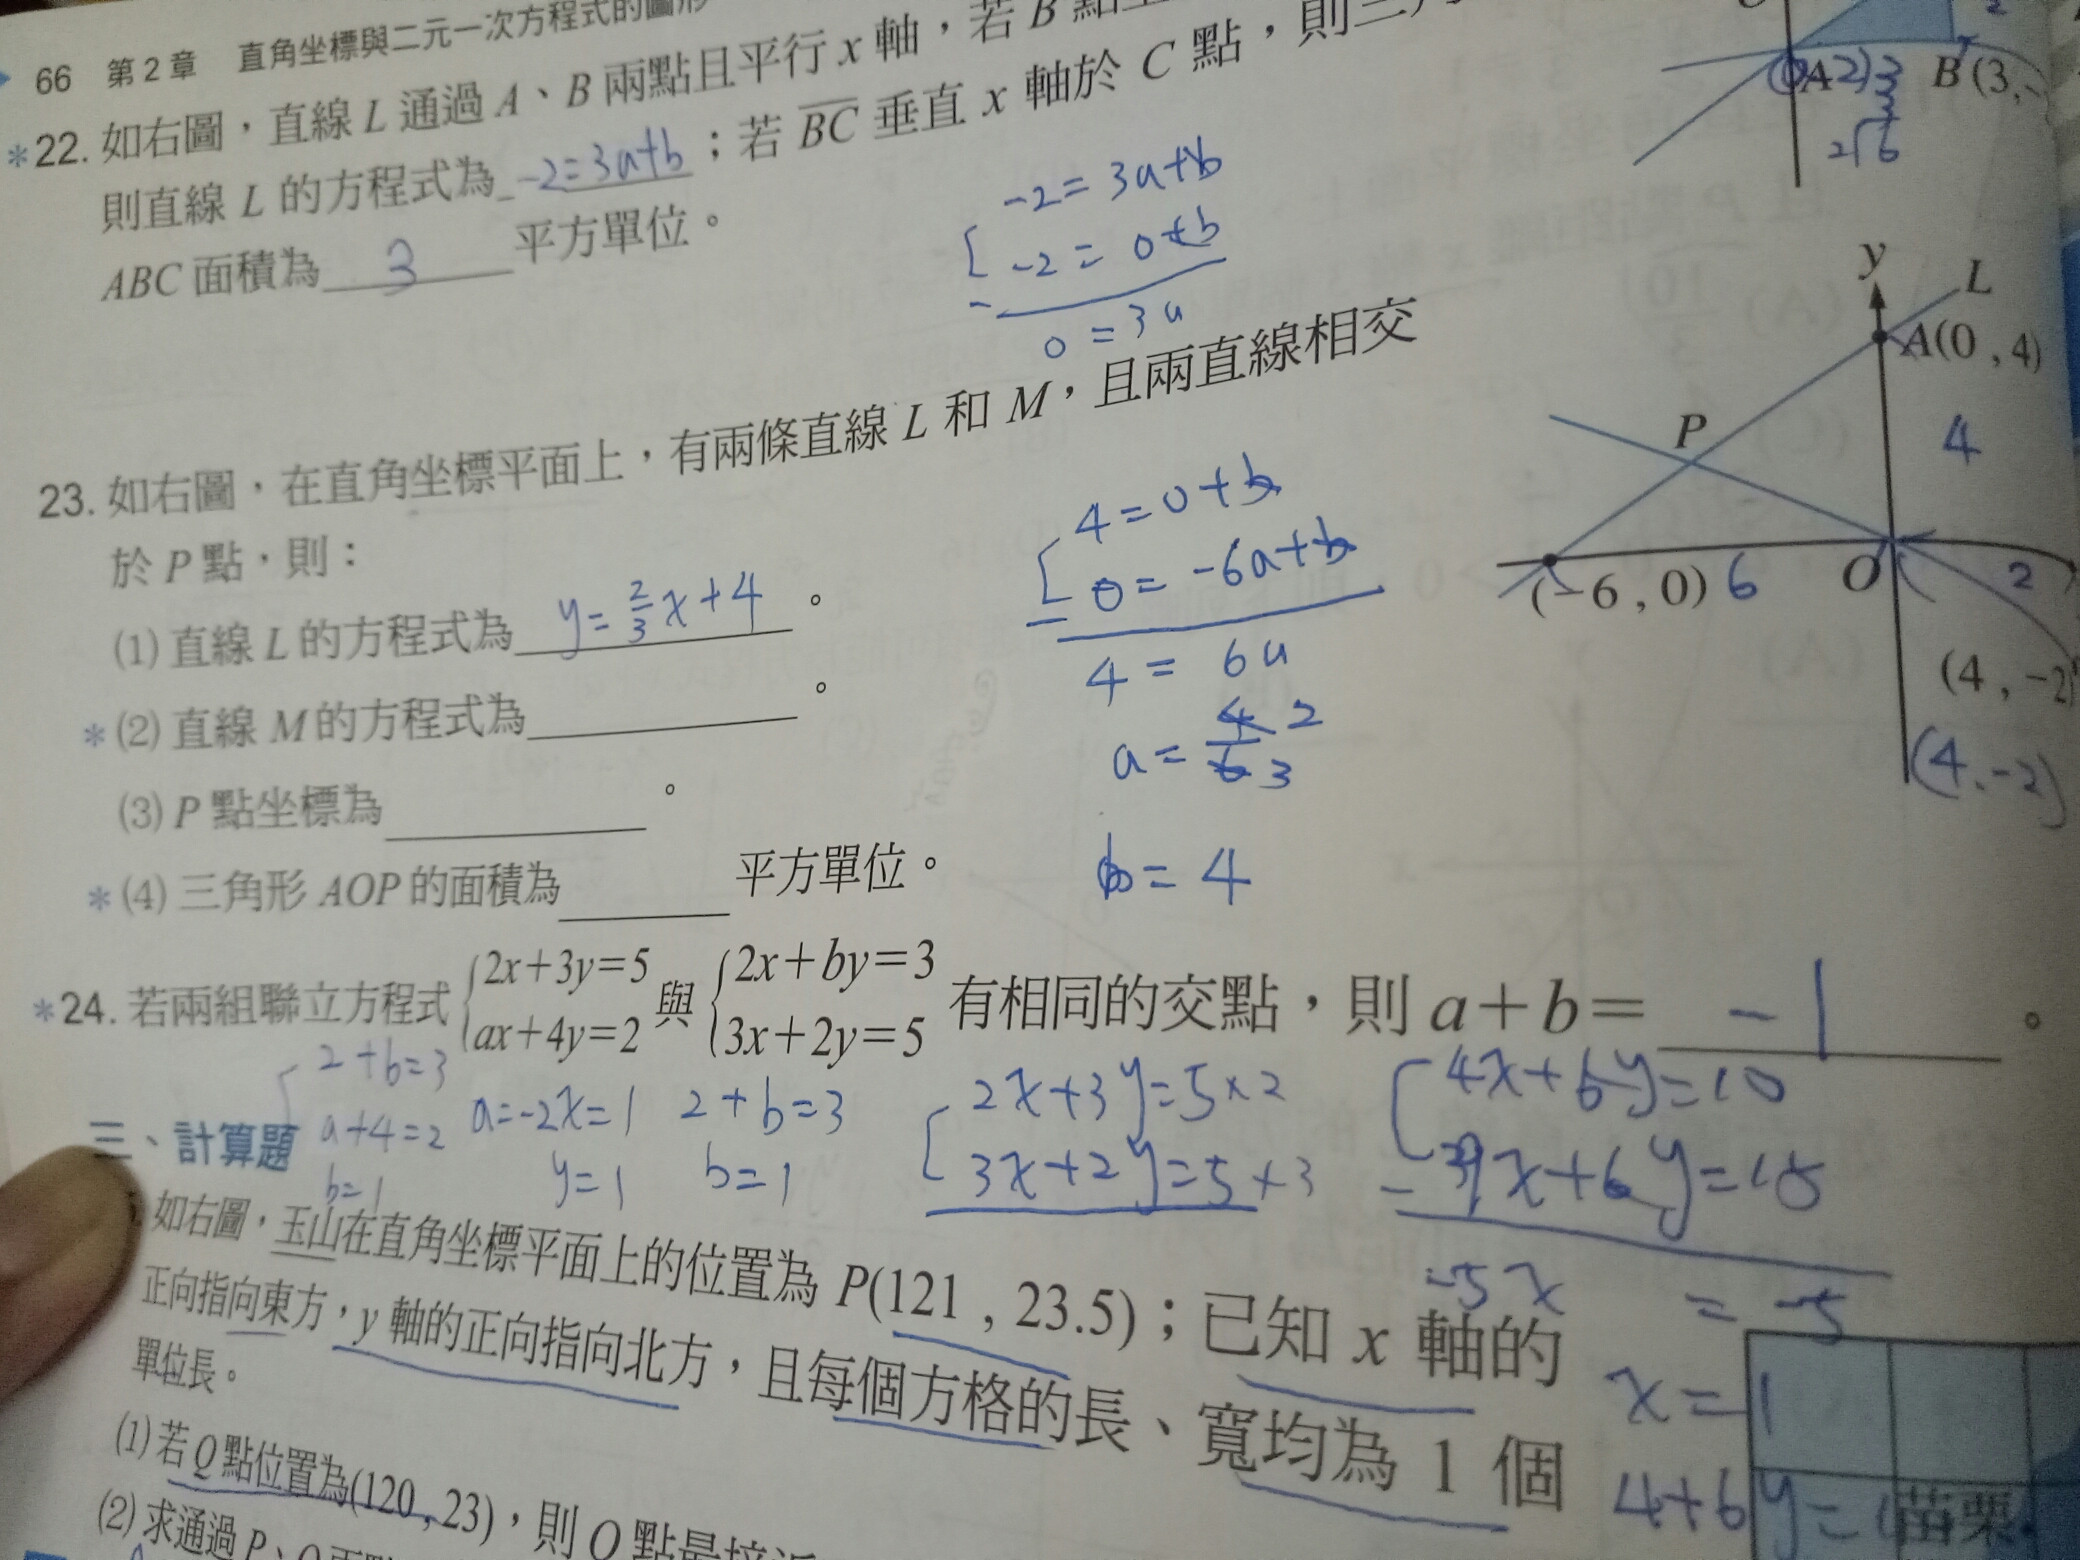 66 第2章 直角坐標與二元一次方程式的圖形
*22. 如右圖，直線 L 通過 A、B 兩點且平行 x 軸，若 B 點
則直線 L 的方程式為 -2=3a+b ；若 BC 垂直 x 軸於 C 點，則三
ABC 面積為 3 平方單位。
-2=3a+b
-2=0+b
0=3a
A
B(3,-
2
23. 如右圖，在直角坐標平面上，有兩條直線 L 和 M，且兩直線相交
於 P 點，則：
(1) 直線 L 的方程式為 y=2/3x+4 。
*(2) 直線 M 的方程式為 。
(3) P 點坐標為 。
*(4) 三角形 AOP 的面積為 平方單位。
4=0+b
0=-6a+b
4=6a
a=4/6 2 3
b=4
y
L
A(0,4)
P
4
(-6,0) 6
O
2
(4,-2)
(4,-2)
*24. 若兩組聯立方程式 {2x+3y=5 ax+4y=2 與 {2x+by=3 3x+2y=5 有相同的交點，則 a+b= -1 。
2+b=3
a+4=2
b=1
a=-2 x=1
y=1
2+b=3
b=1
2x+3y=5×2
3x+2y=5×3
4x+6y=10
9x+6y=15
-5x = -5
x=1
4+6y=1
三、計算題
如右圖，玉山在直角坐標平面上的位置為 P(121,23.5)；已知 x 軸的
正向指向東方，y 軸的正向指向北方，且每個方格的長、寬均為 1 個
單位長。
(1) 若 Q 點位置為(120,23)，則 Q 點最接近
(2) 求通過 P、Q
苗栗